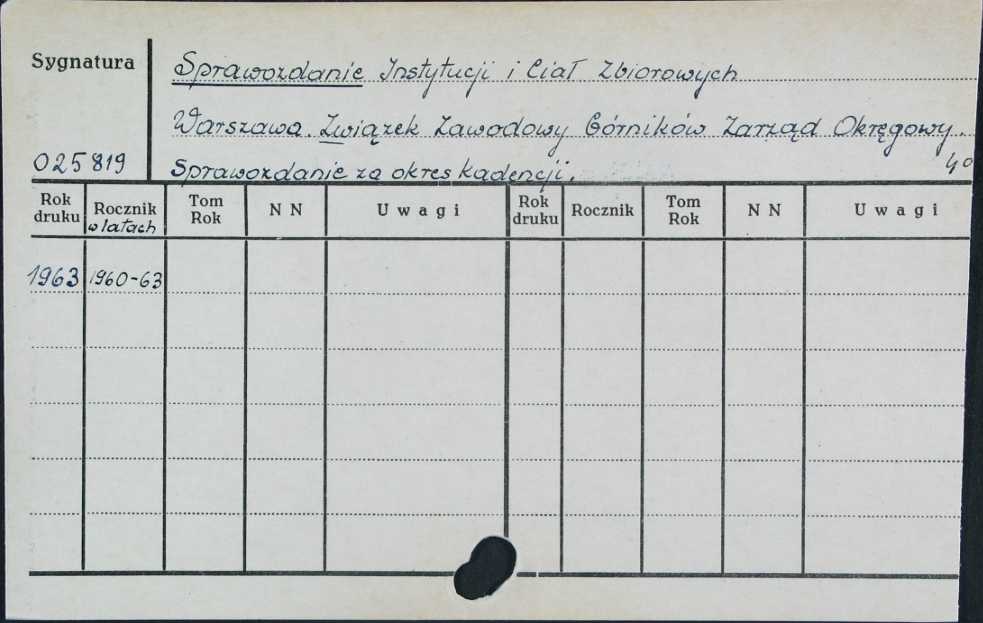 Sygnatura
Sprawozdanie Instytucji i Ciał Zbiorowych
Warszawa. Związek Zawodowy Górników Zarząd Okręgowy.
025819
Sprawozdanie za okres kadencji.
4°
Rok druku Rocznik w latach Tom Rok N N Uwagi Rok druku Rocznik Tom Rok N N Uwagi
1963 1960-63